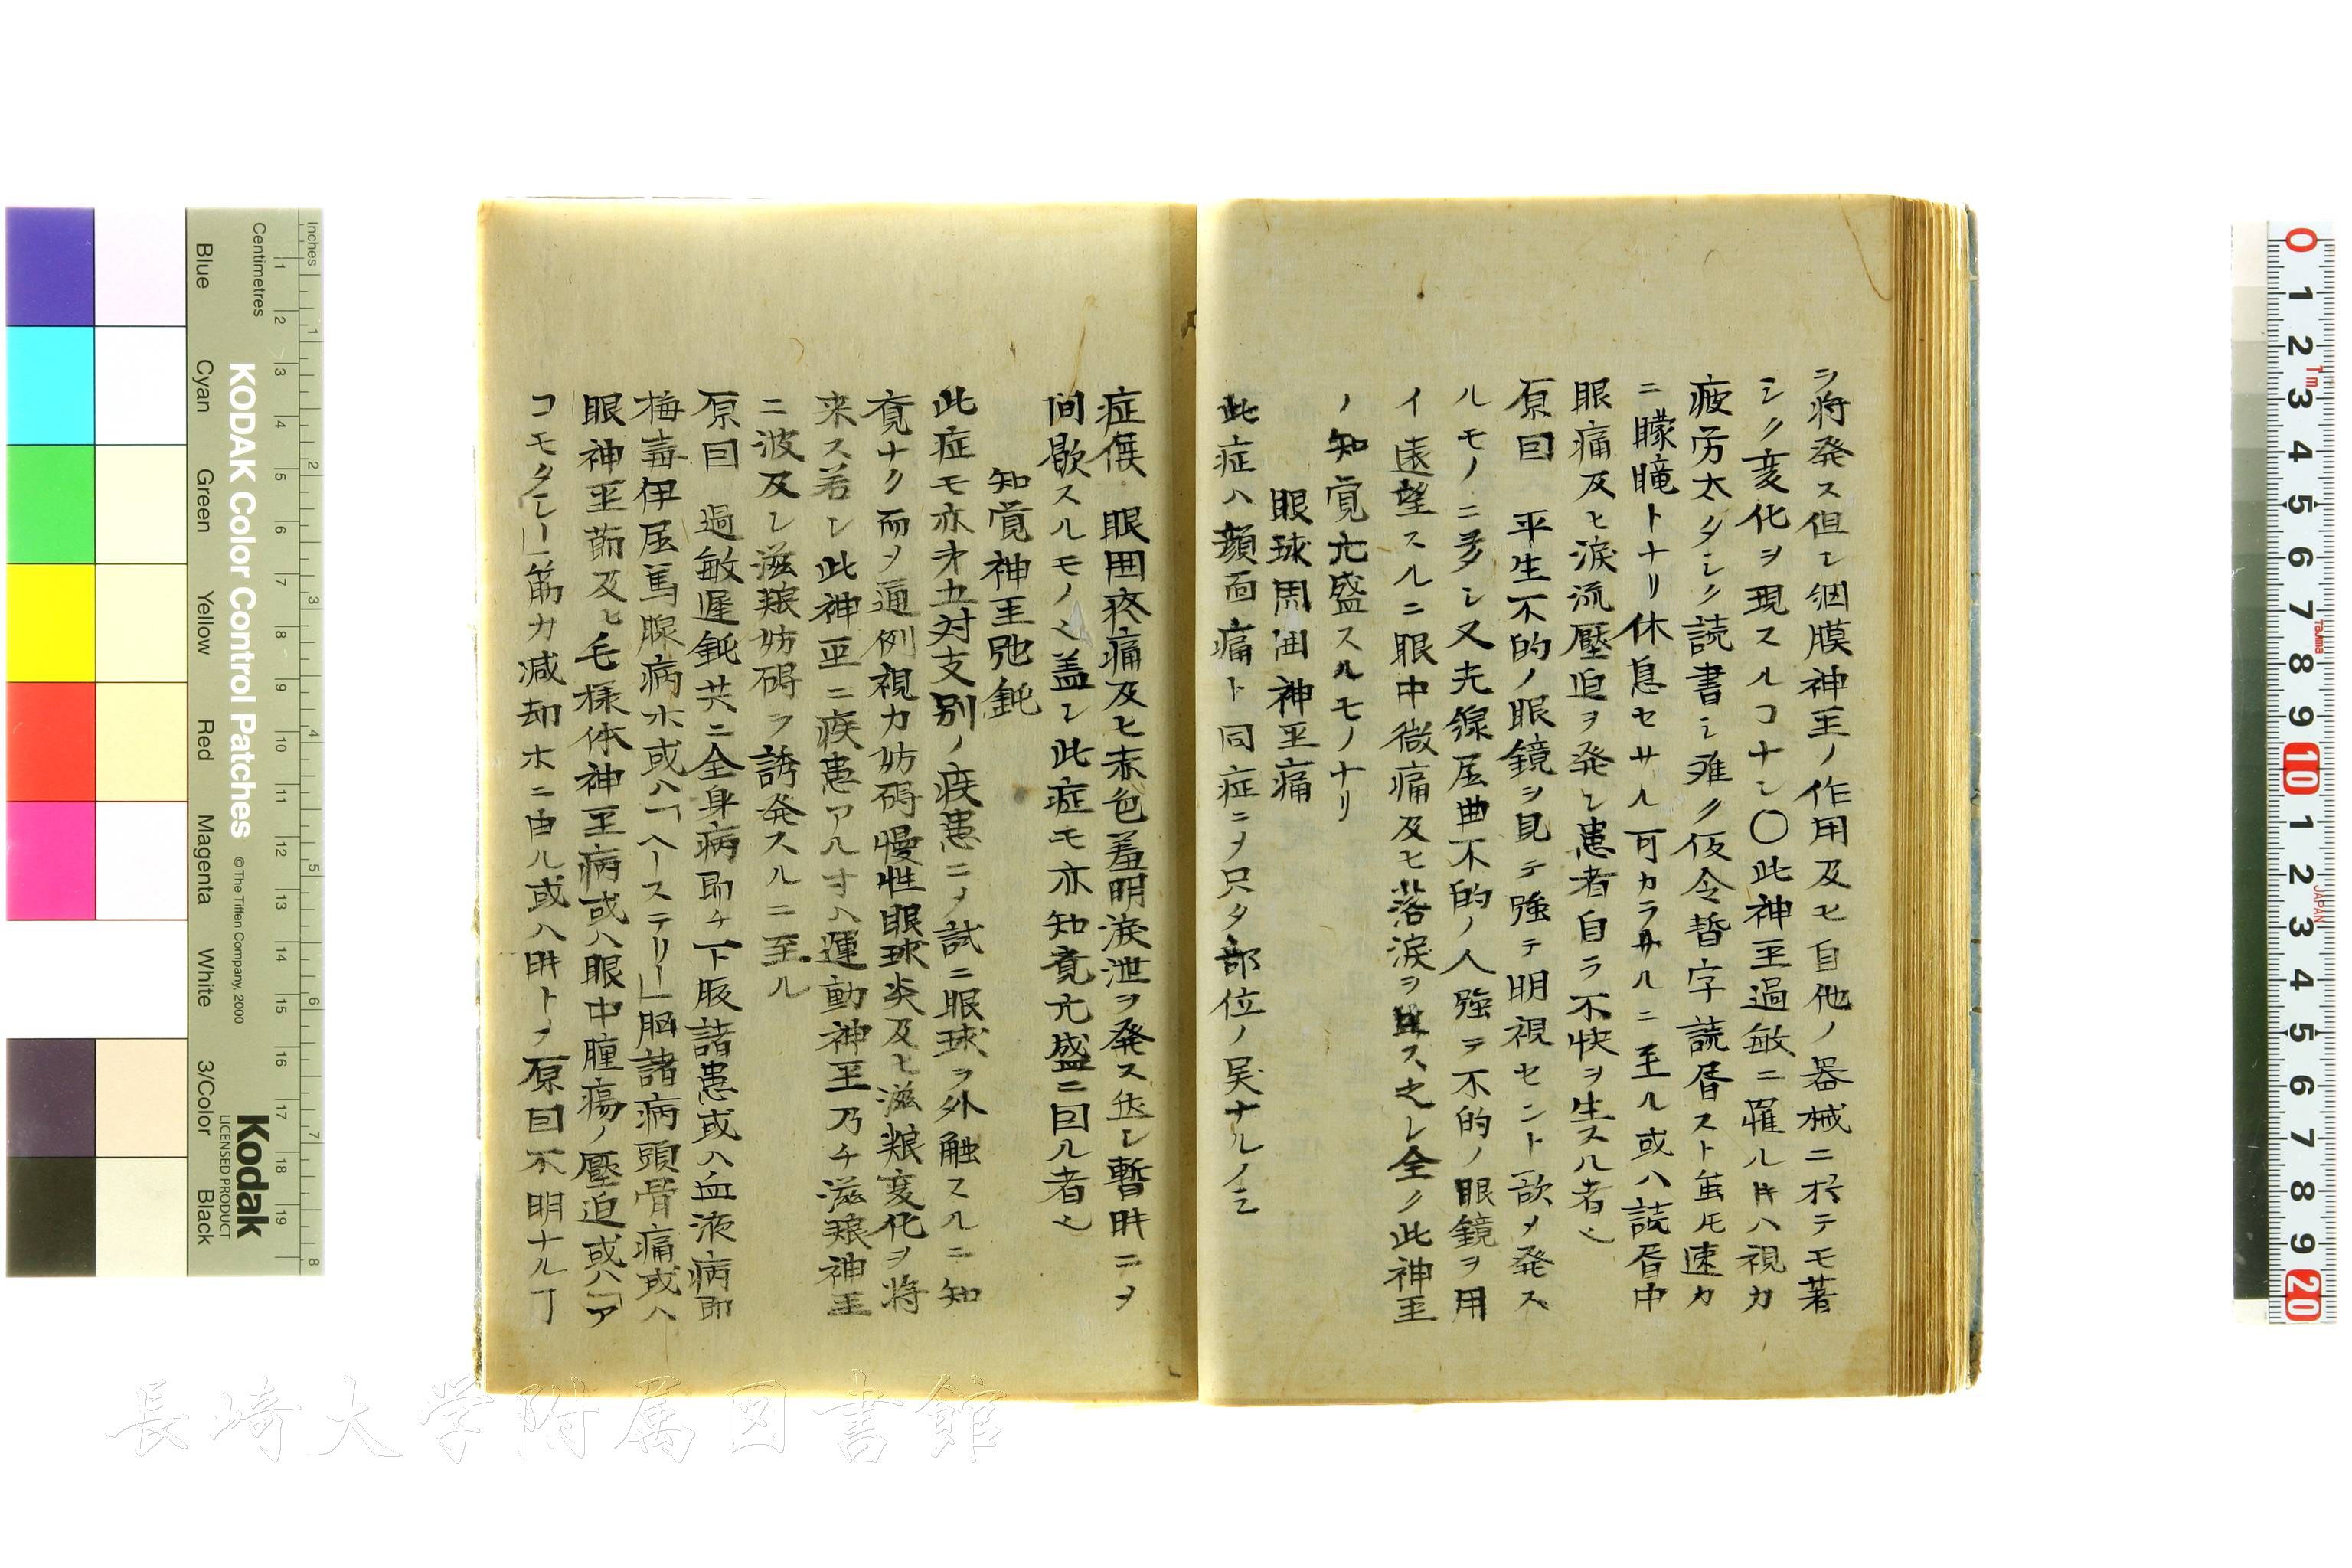 ヲ将発ス但シ網膜神圣ノ作用及ヒ自他ノ器械ニ於テモ著
シク変化ヲ現スルコナシ〇此神圣過敏ニ罹ル時ハ視力
疲労太タシク読書シ難ク仮令暫字読居スト虽𪜈速カ
ニ矇瞳トナリ休息セサル可カラサルニ至ル或ハ読居中
眼痛及ヒ涙流壓迫ヲ発シ患者自ラ不快ヲ生スル者也
原因 平生不的ノ眼鏡ヲ見テ強テ明視セント欲メ発ス
ルモノニ多シ又光線屈曲不的ノ人強テ不的ノ眼鏡ヲ用
イ遠望スルニ眼中微痛及ヒ落涙ヲ ス之レ全ク此神圣
ノ知覚亢盛スルモノナリ
眼球周囲神圣痛
此症ハ顔面痛ト同症ニメ只タ部位ノ異ナルノミ
症候 眼囲疼痛及ヒ赤色羞明涙泄ヲ発ス然シ暫時ニメ
間歇スルモノ也盖シ此症モ亦知覚亢盛ニ因ル者也
知覚神圣弛鈍
此症モ亦才五対支別ノ疾患ニメ試ニ眼球ヲ外触スルニ知
覚ナク而メ通例視力妨碍慢性眼球炎及ヒ滋粮変化ヲ将
来ス若シ此神圣ニ疾患アル寸ハ運動神圣乃チ滋粮神圣
ニ波及シ滋粮妨碍ヲ誘発スルニ至ル
原因 過敏遅鈍共ニ全身病即チ下腹諸患或ハ血液病即
梅毒伊屈篤腺病ホ或ハ「ヘーステリー」脳諸病頭骨痛或ハ
眼神圣節及ヒ毛様体神圣病或ハ眼中腫瘍ノ壓迫或ハ「ア
コモタシー」筋力減却ホニ由ル或ハ時トメ原因不明ナルヿ
Inches
Centimetres
KODAK Color Control Patches
© The Tiffen Company, 2000
Kodak
LICENSED PRODUCT
Blue
Cyan
Green
Yellow
Red
Magenta
White
3/Color
Black
長崎大学附属図書館